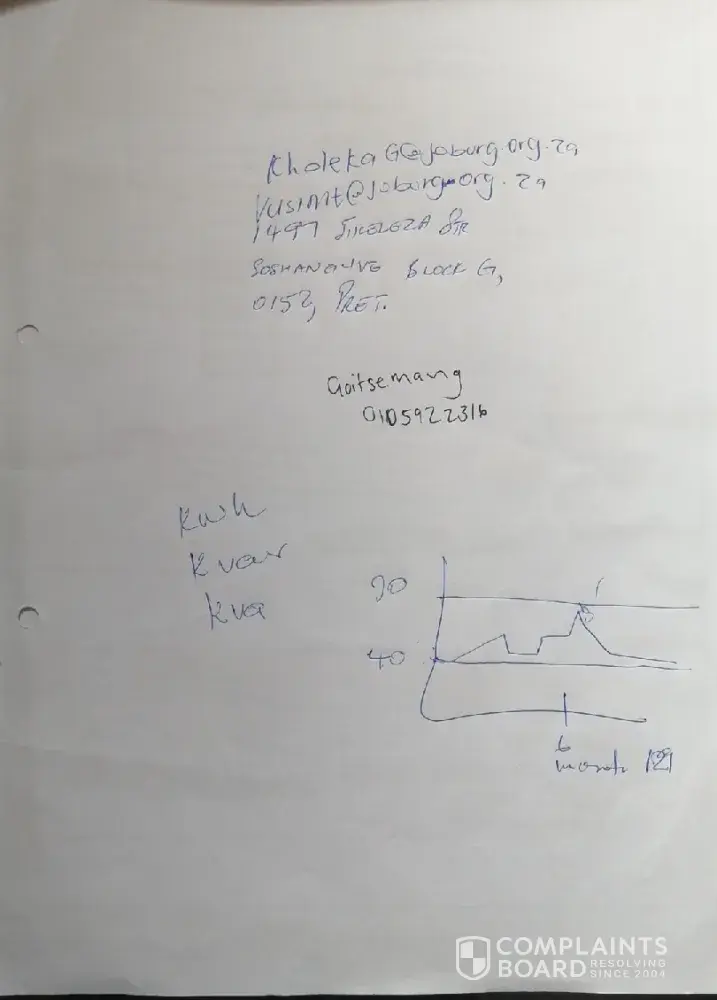 KholekaG@joburg.org.za
VusiMt@joburg.org.za
1497 Sikeleza Str
Soshanguve Block G,
0152, Pret.
Goitsemang
0105922316
Kwh
Kvar
kva
90
40
6
month
COMPLAINTS
BOARD RESOLVING SINCE 2004